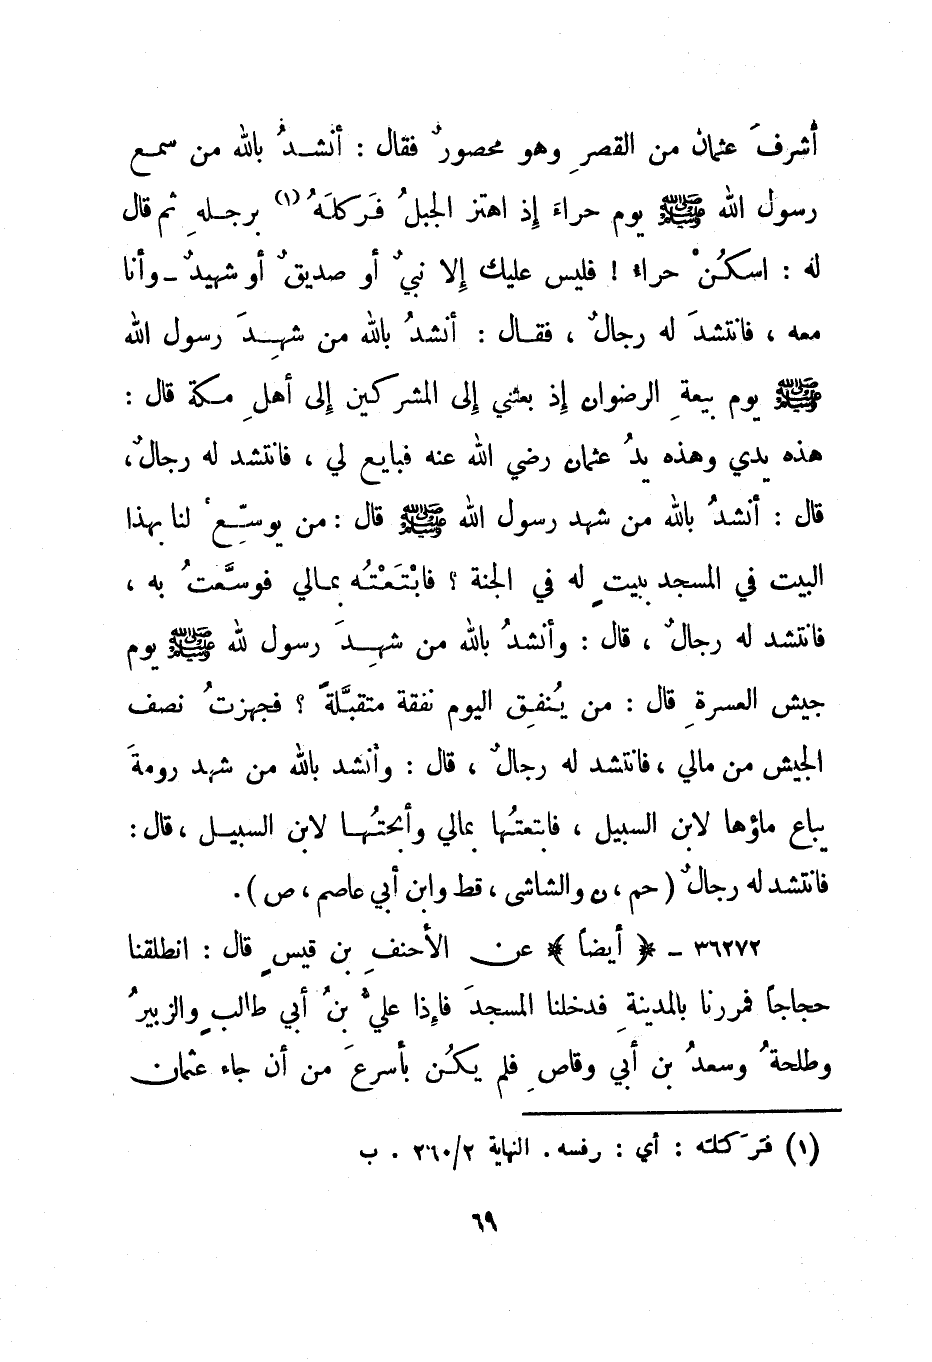 أشرفَ عثمانُ من القصرِ وهو محصورٌ فقال : أنشـدُ بالله من سمـع
رسول الله ﷺ يوم حراءَ إذ اهتز الجبلُ فَركلَهُ (١) برجـلهِ ثم قال
له : اسكُنْ حراء ! فليس عليك إلا نبيٌ أو صديقٌ أو شهيدٌ ـ وأنا
معه ، فانتشدَ له رجالٌ ، فقـال : أنشدُ بالله من شهـدَ رسول الله
ﷺ يوم بيعةِ الرضوان إذ بعثني إلى المشركين إلى أهلِ مكة قال :
هذه يدي وهذه يدُ عثمان رضي الله عنه فبايع لي ، فانتشد له رجالٌ ،
قال : أنشدُ بالله من شهد رسول الله ﷺ قال : من يوسّـعُ لنا بهذا
البيت في المسجد ببيتٍ له في الجنة ؟ فابْتَعْتُـه بمـالي فوسَّعتُ به ،
فانتشد له رجالٌ ، قال : وأنشدُ بالله من شهِـدَ رسول لله ﷺ يوم
جيش العسرةِ قال : من يُنفـق اليوم نفقة متقبَّلةً ؟ فجهزتُ نصف
الجيش من مالي ، فانتشد له رجالٌ ، قال : وأنشد بالله من شهد رومةَ
يباع ماؤها لابن السبيل ، فابتعتُها بمالي وأبحتُهـا لابن السبيـل ، قال :
فانتشد له رجالٌ ( حم ، ن والشاشى ، قط وابن أبي عاصم ، ص ) .
٣٦٢٧٢ ـ ﴿ أيضاً ﴾ عن الأحنفِ بن قيسٍ قال : انطلقنا
حجاجاً فمررنا بالمدينةِ فدخلنا المسجدَ فإذا عليُّ بنُ أبي طالبٍ والزبيرُ
وطلحةُ وسعدُ بن أبي وقاصٍ فلم يكُن بأسرعَ من أن جاء عثمان
(١) فَرَكَلَه : أي : رفسه . النهاية ٢٦٠/٢ . ب
٦٩